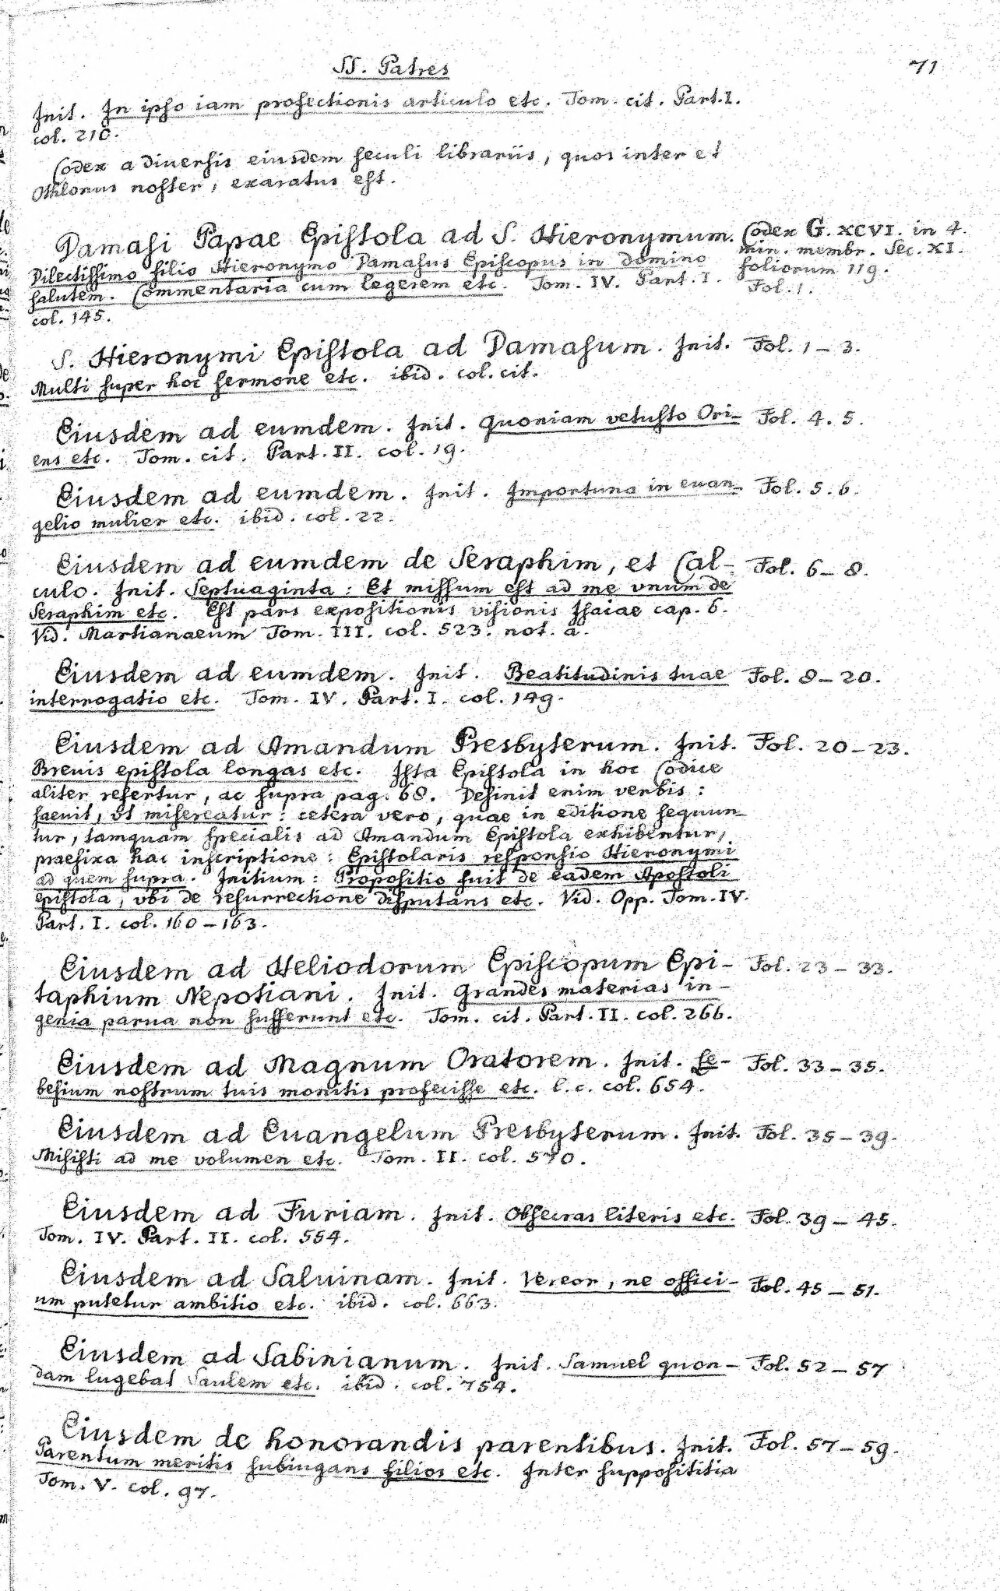 SS. Patres
71
Init. In ipso iam profectionis articulo etc. Tom. cit. Part. I.
col. 210.
Codex a diversis eiusdem seculi librariis, quos inter et
Othlonus noster, exaratus est.
Damasi Papae Epistola ad S. Hieronymum. Codex G. XCVI. in 4.
Dilectissimo filio Hieronymo Damasus Episcopus in domino min. membr. Sec. XI.
salutem. Commentaria cum legerem etc. Tom. IV. Part. I. foliorum 119.
col. 145. Fol. 1.
S. Hieronymi Epistola ad Damasum. Init. Fol. 1 – 3.
Multi super hoc sermone etc. ibid. col. cit.
Eiusdem ad eumdem. Init. Quoniam vetusto Ori- Fol. 4. 5.
ens etc. Tom. cit. Part. II. col. 19.
Eiusdem ad eumdem. Init. Importuna in euan- Fol. 5. 6.
gelio mulier etc. ibid. col. 22.
Eiusdem ad eumdem de Seraphim, et Cal- Fol. 6 – 8.
culo. Init. Septuaginta: Et missum est ad me vnum de
Seraphim etc. Est pars expositionis visionis Isaiae cap. 6.
Vid. Martianaeum Tom. III. col. 523. not. a.
Eiusdem ad eumdem. Init. Beatitudinis tuae Fol. 8 – 20.
interrogatio etc. Tom. IV. Part. I. col. 149.
Eiusdem ad Amandum Presbyterum. Init. Fol. 20 – 23.
Breuis epistola longas etc. Ista Epistola in hoc Codice
aliter refertur, ac supra pag. 68. Definit enim verbis:
saeuit, vt misereatur: cetera vero, quae in editione sequun
tur, tamquam specialis ad Amandum Epistola exhibentur,
praefixa hac inscriptione: Epistolaris responsio Hieronymi
ad quem supra. Initium: Propositio fuit de eadem Apostoli
epistola, vbi de resurrectione disputans etc. Vid. Opp. Tom. IV.
Part. I. col. 160 – 163.
Eiusdem ad Heliodorum Episcopum Epi- Fol. 23 – 33.
taphium Nepotiani. Init. Grandes materias in-
genia parua non sufferunt etc. Tom. cit. Part. II. col. 266.
Eiusdem ad Magnum Oratorem. Init. Se- Fol. 33 – 35.
besium nostrum tuis monitis profecisse etc. l. c. col. 654.
Eiusdem ad Euangelum Presbyterum. Init. Fol. 35 – 39.
Misisti ad me volumen etc. Tom. II. col. 570.
Eiusdem ad Furiam. Init. Obsecras literis etc. Fol. 39 – 45.
Tom. IV. Part. II. col. 554.
Eiusdem ad Saluinam. Init. Vereor, ne offici- Fol. 45 – 51.
um putetur ambitio etc. ibid. col. 663.
Eiusdem ad Sabinianum. Init. Samuel quon- Fol. 52 – 57
dam lugebat Saulem etc. ibid. col. 754.
Eiusdem de honorandis parentibus. Init. Fol. 57 – 59.
Parentum meritis subiugans filios etc. Inter supposititia
Tom. V. col. 97.